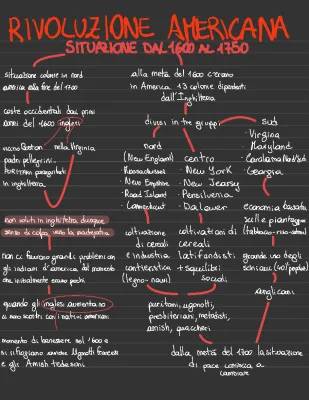 RIVOLUZIONE AMERICANA
SITUAZIONE DAL 1600 AL 1750
situazione colonie in nord
america alla fine del 1700
coste occidentali dai primi
anni del 1600 inglesi
vicino Boston nella Virginia
padri pellegrini
puritani perseguitati
in inghilterra
non voluti in inghilterra, dunque
senso di colpa verso la madrepatria
non ci furono grandi problemi con
gli indiani d'america dal momento
che inizialmente erano pochi
quando gli inglesi aumentano
ci sono scontri con i nativi americani
momento di benessere nel 1600 e
si rifugiano anche Ugonotti francesi
e gli Amish tedeschi
alla metà del 1600 c'erano
in America 13 colonie dipendenti
dall'Inghilterra
divisi in tre gruppi
nord
(New England)
Massachusset
New Empshire
Road Island
Connecticut
coltivazione
di cereali
e industria
cantieristica
(legno-navi)
centro
New York
New Jearsy
Pensilvenia
Dallower
coltivazioni di
cereali
latifondisti
+ squilibri
sociali
puritani, ugonotti,
presbiteriani, metodisti,
amish, quaccheri
sud
Virginia
Maryland
Carolina Nord/Sud
Georgia
economia basata
sulle piantagioni
(tabacco-riso-cotone)
grande uso degli
schiavi (40% popolaz)
anglicani
dalla metà del 1700 la situazione
di pace comincia a
cambiare